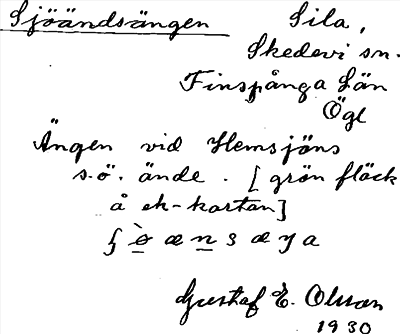 Sjöändsängen
Sila,
Skedevi sn.
Finspånga Län
Ögl
Ängen vid Hemsjöns
s.ö. ände. [grön fläck
å ek-kartan]
Gustaf E. Olsson
1930